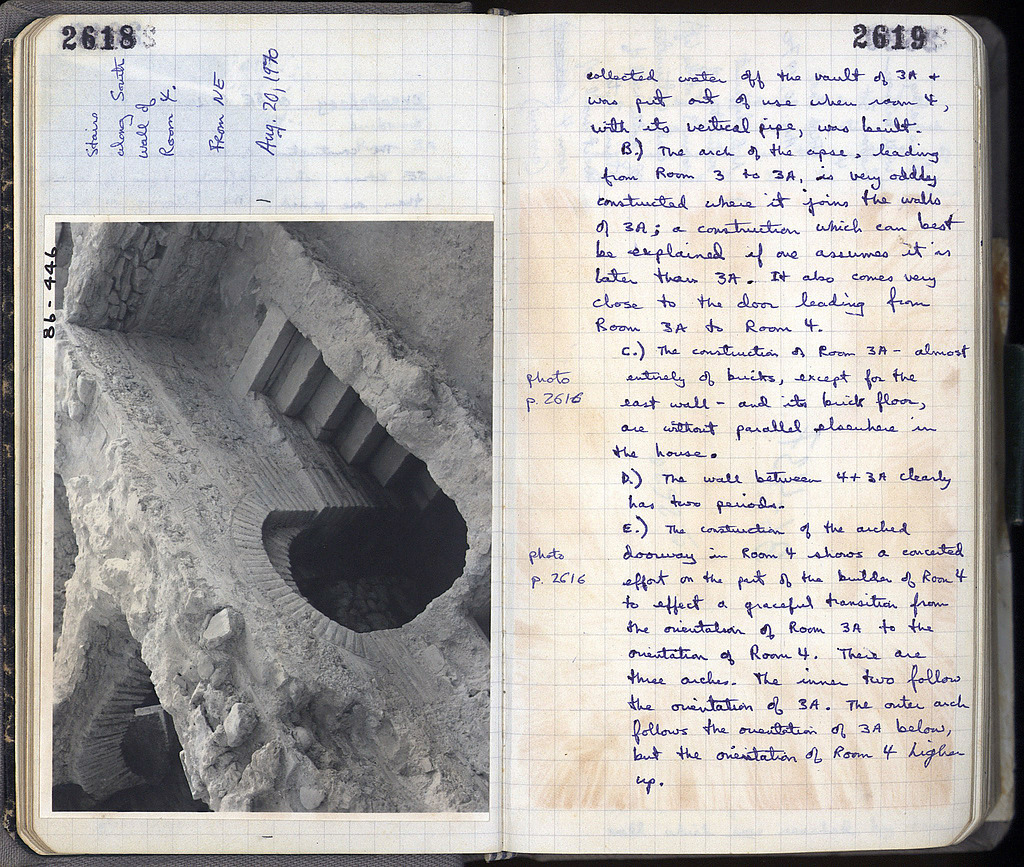 2618
Stairs
along South
wall of
Room 4.
From NE
Aug. 20, 1970
86-446
2619
collected water off the vault of 3A +
was put out of use when room 4,
with its vertical pipe, was built.
B.) The arch of the apse, leading
from Room 3 to 3A, is very oddly
constructed where it joins the walls
of 3A; a construction which can best
be explained if one assumes it is
later than 3A. It also comes very
close to the door leading from
Room 3A to Room 4.
C.) The construction of Room 3A - almost
photo entirely of bricks, except for the
p. 2616 east wall - and its brick floor,
are without parallel elsewhere in
the house.
D.) The wall between 4 + 3A clearly
has two periods.
E.) The construction of the arched
photo doorway in Room 4 shows a concerted
p. 2616 effort on the part of the builder of Room 4
to effect a graceful transition from
the orientation of Room 3A to the
orientation of Room 4. There are
three arches. The inner two follow
the orientation of 3A. The outer arch
follows the orientation of 3A below,
but the orientation of Room 4 higher
up.